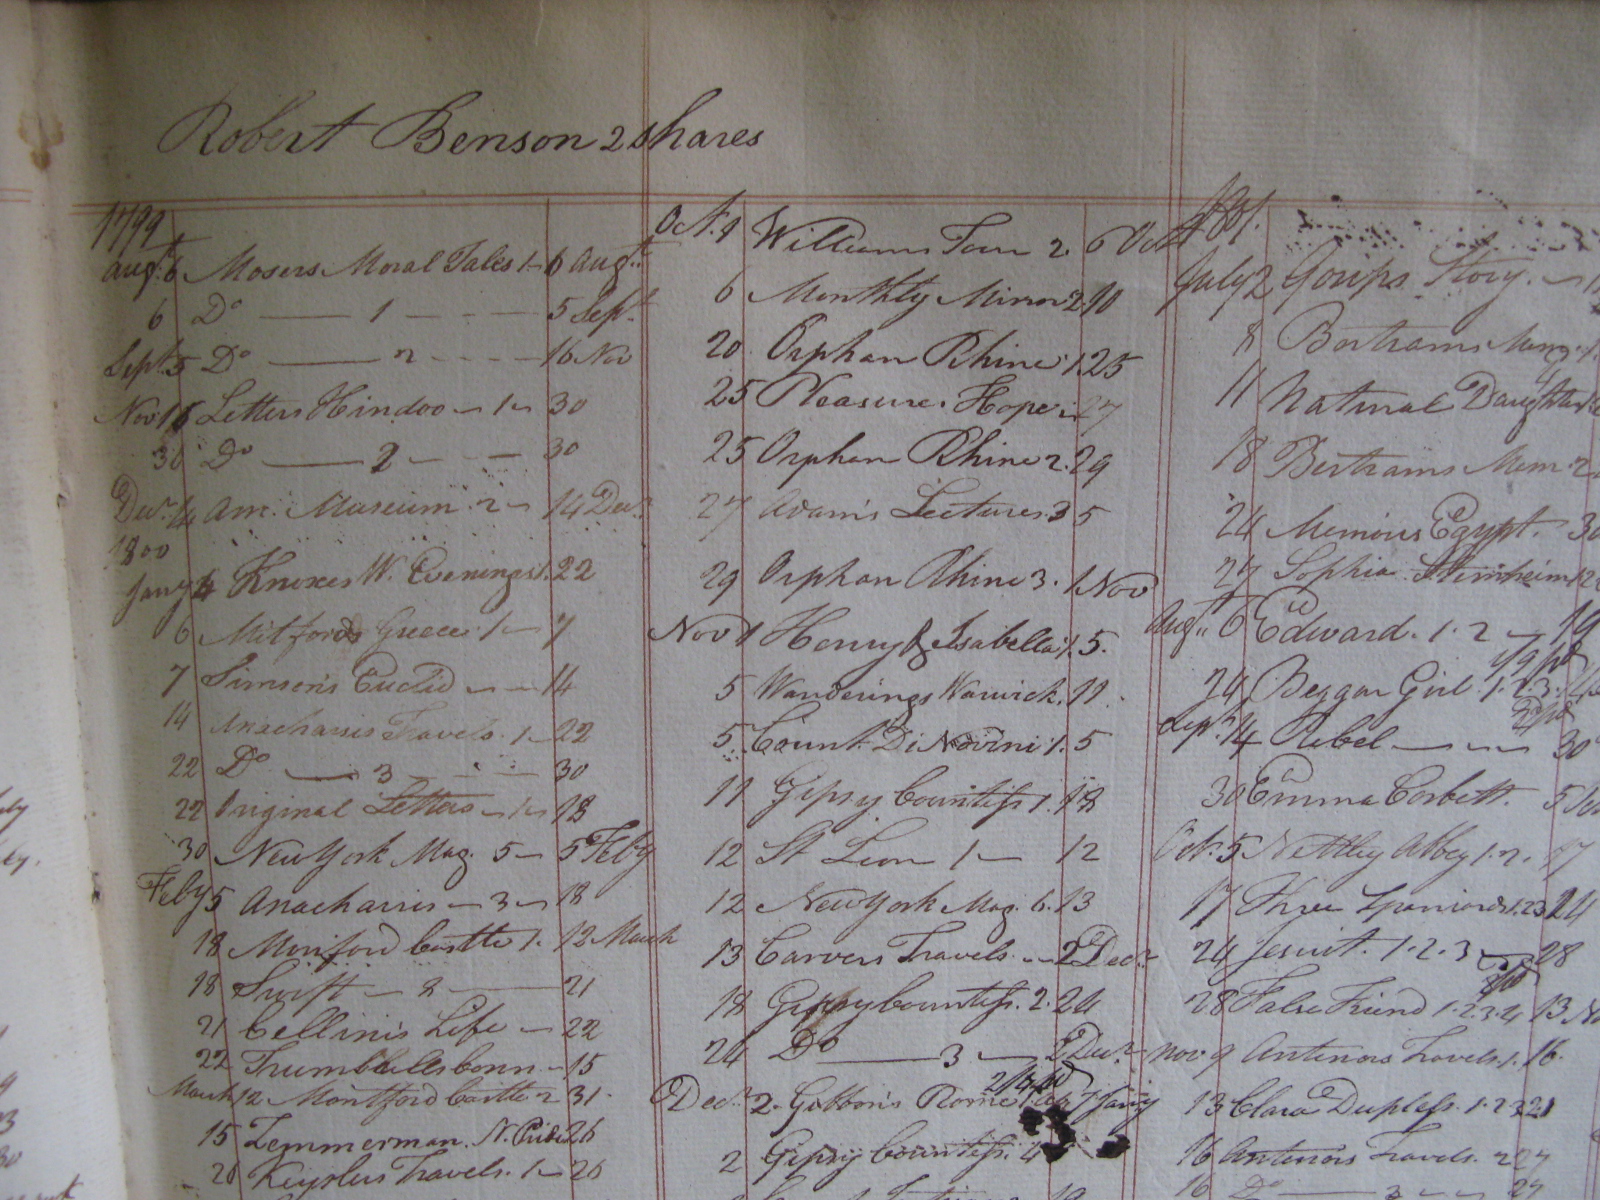 Robert Benson 2 shares
1799
Augt. 6 Mosers Moral Tales 1 6 Augt.
6 Do 1 5 Sept.
Sept. 5 Do 2 16 Nov
Nov 16 Letters Hindoo 1 30
30 Do 2 30
Decr. 14 Am. Museum 2 14 Decr.
1800
Jany 4 Knoxes W. Evenings 1. 22
6 Mitfords Greece 1 7
7 Simson's Euclid 14
14 Anacharsis Travels. 1 22
22 Do 3 30
22 Original Letters 1 18
30 New York Mag. 5 5 Feby
Feby 5 Anacharsis 3 18
18 Monford Castle 1. 12 March
18 Swift 2 21
21 Cellini's Life 22
22 Trumbulls Conn 15
March 12 Montford Castle 2 31.
15 Zemmerman. N. Pride 26
26 Keyslers Travels. 1 26
Oct. 4 Williams Tour 2. 6 Oct
6 Monthly Mirror 2 10
20 Orphan Rhine 1. 25
25 Pleasures Hope 27
25 Orphan Rhine 2. 29
27 Adam's Lectures 3 5
29 Orphan Rhine 3. 1 Nov
Nov 1 Henry & Isabella 1. 5.
5 Wanderings Warwick. 11.
5. Count Di Novini 1. 5
11 Gipsy Countess 1. 18
12 St Leon 1 12
12 New York Mag. 6. 13
13 Carvers Travels 2 Decr.
18 Gipsy Countess. 2. 24
24 Do 3 2 Decr.
Decr. 2. Gibbon's Rome Jany
2 Gipsy Countess. 4
1801.
July 2 Gossips Story.
8 Bertrams Mem
11 Natural Daughter
18 Bertrams Mem. 2
24 Memoirs Egypt. 30
27 Sophia Sternheim
Augt. 6 Edward. 1. 2 19
24 Beggar Girl. 1. 2. 3.
Sept. 4 Rebel 30
30 Emma Corbett. 5
Oct. 5 Nettley Abbey 1. 2. 17
17 Three Spaniards 1. 2 3 24
24 Jesuit. 1. 2. 3 28
28 False Friend 1. 2. 3. 4 13 No
Nov. 9 Antenors Travels. 1. 16.
13 Clara Dupless. 1. 2 3 21
16 Antenors Travels. 2 27
16 Do 3 27